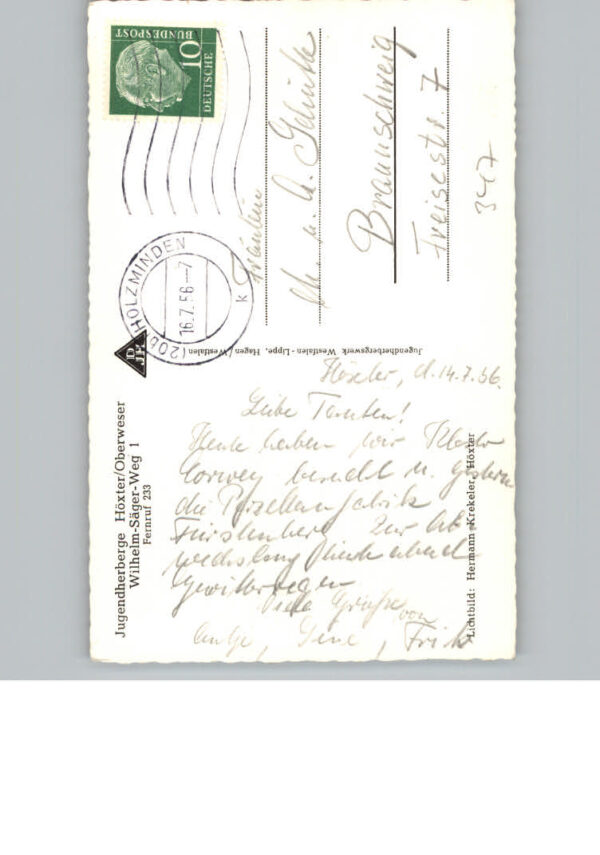 Jugendherberge Höxter/Oberweser
Wilhelm-Säger-Weg 1
Fernruf 233
Höxter, d. 14.7.56.
Liebe Tanten!
Heute haben wir Kloster
Corvey besucht u. gestern
die Porzellanfabrik
Fürstenberg. Zur Ab-
wechslung heute abend
Gewitterregen
Viele Grüße von
Antje, , Fritz
Lichtbild: Hermann Krekeler, Höxter
Jugendherbergswerk Westfalen-Lippe, Hagen/Westfalen
DJH
(20b) HOLZMINDEN
16.7.56—7
k
DEUTSCHE
BUNDESPOST
10
Fräulein
u. A.
Braunschweig
7
3417